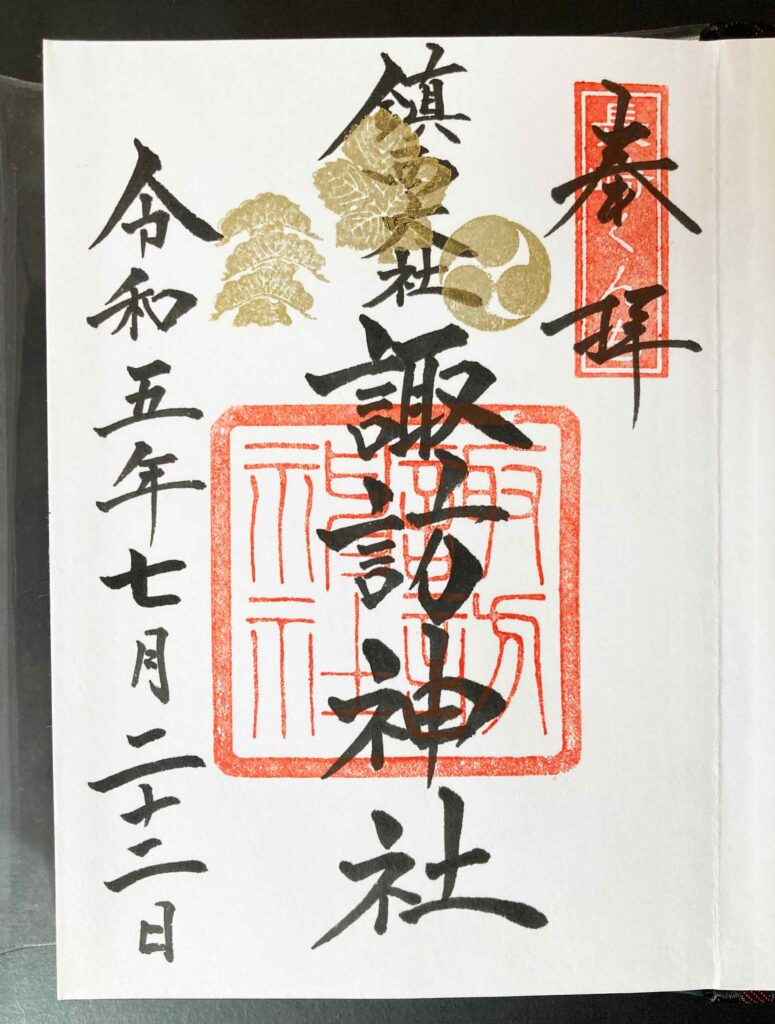 奉拝
鎮西大社
諏訪神社
諏訪神社
令和五年七月二十二日